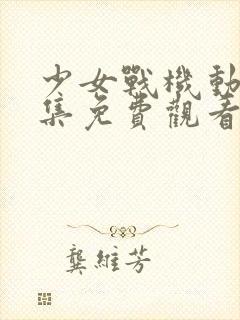 少女戰機動
集免費觀看
龔維芳